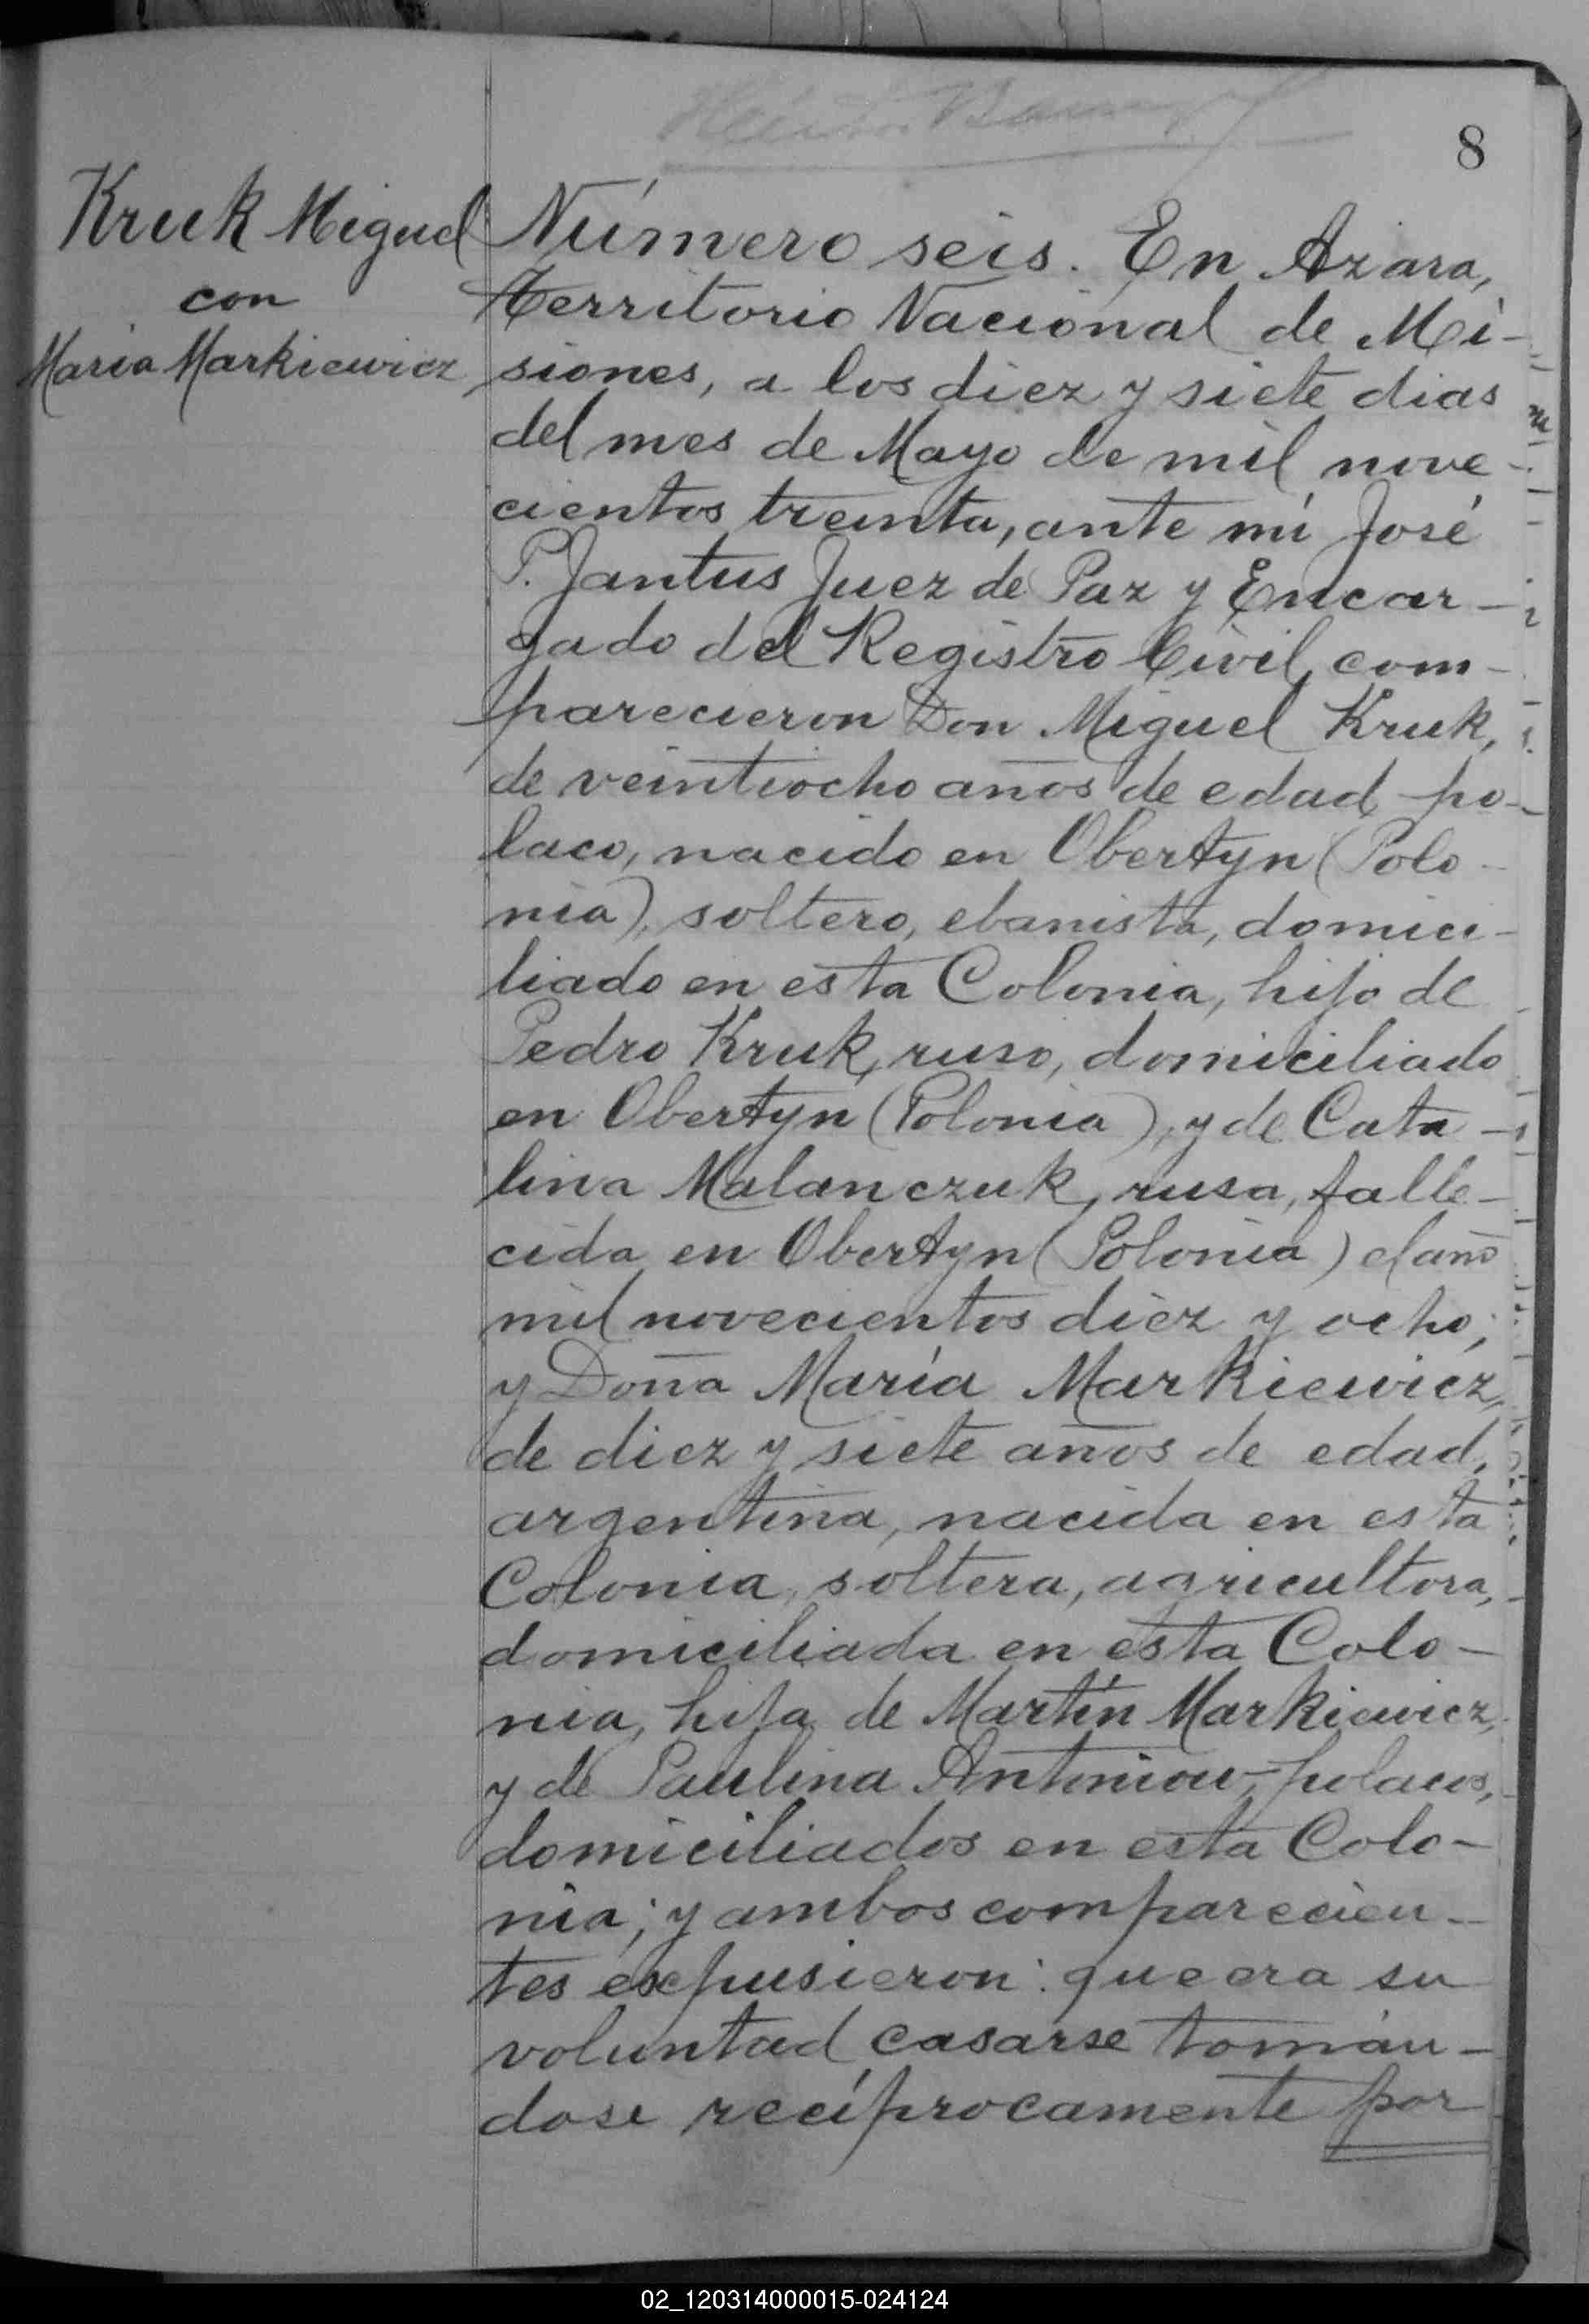 8
Kruk Miguel
con
Maria Markiewicz
Número seis. En Azara,
Territorio Nacional de Mi-
siones, a los diez y siete dias
del mes de Mayo de mil nove-
cientos treinta, ante mí José
P. Jantus Juez de Paz y Encar-
gado del Registro Civil, com-
parecieron Don Miguel Kruk,
de veintiocho años de edad, po-
laco, nacido en Obertyn (Polo-
nia), soltero, ebanista, domici-
liado en esta Colonia, hijo de
Pedro Kruk, ruso, domiciliado
en Obertyn (Polonia), y de Cata-
lina Malanczuk, rusa, falle-
cida en Obertyn (Polonia) el año
mil novecientos diez y ocho;
y Doña María Markiewicz,
de diez y siete años de edad,
argentina, nacida en esta
Colonia, soltera, agricultora,
domiciliada en esta Colo-
nia, hija de Martín Markiewicz,
y de Paulina Antoniow, polacos,
domiciliados en esta Colo-
nia; y ambos comparecien-
tes expusieron: que era su
voluntad casarse tomán-
dose recíprocamente por
02_120314000015-024124